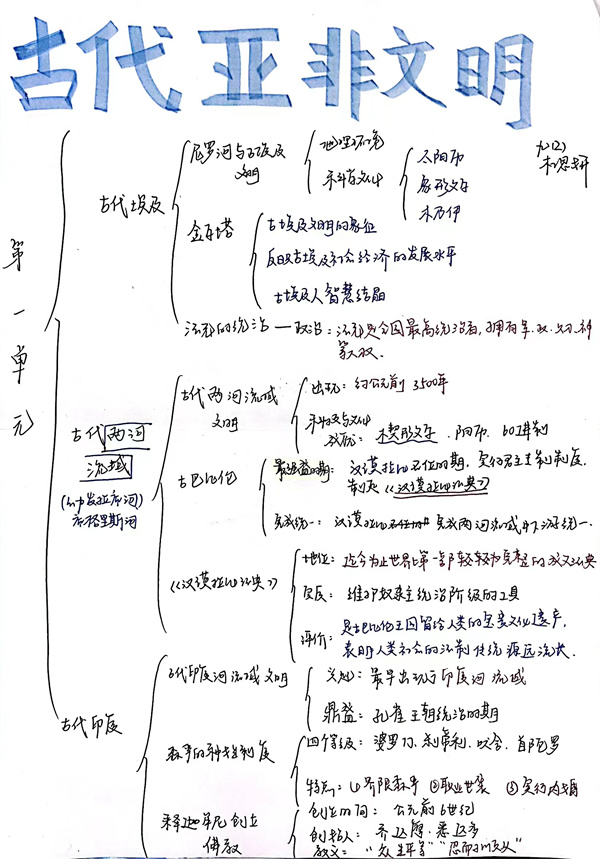 古代亚非文明
九(2)
第一单元
古代埃及
尼罗河与古埃及
文明
地理环境
科技文化
太阳历
象形文字
木乃伊
金字塔
古埃及文明的象征
反映古埃及社会经济的发展水平
古埃及人智慧结晶
法老的统治—政治:法老是全国最高统治者,拥有军.政.财.神
等大权.
古代两河
流域
(幼发拉底河)
底格里斯河
古代两河流域
文明
出现:约公元前3500年
科技与文化
成就:楔形文字.阴历.60进制
古巴比伦
最强盛时期:汉谟拉比在位时期,实行君主专制制度,
制定《汉谟拉比法典》
完成统一:汉谟拉比在位时期完成两河流域中下游统一.
《汉谟拉比法典》
地位:迄今为止世界上第一部较为完整的成文法典
实质:维护奴隶主统治阶级的工具
评价:是古巴比伦王国留给人类的宝贵文化遗产,
表明人类社会的法制传统源远流长.
古代印度
古代印度河流域文明
兴起:最早出现于印度河流域
鼎盛:孔雀王朝统治时期
森严的种姓制度
四个等级:婆罗门、刹帝利、吠舍、首陀罗
特点:①界限森严 ②职业世袭 ③实行内婚
释迦牟尼创立
佛教
创立时间:公元前6世纪
创始人:乔达摩·悉达多
教义:"众生平等""忍耐顺从"